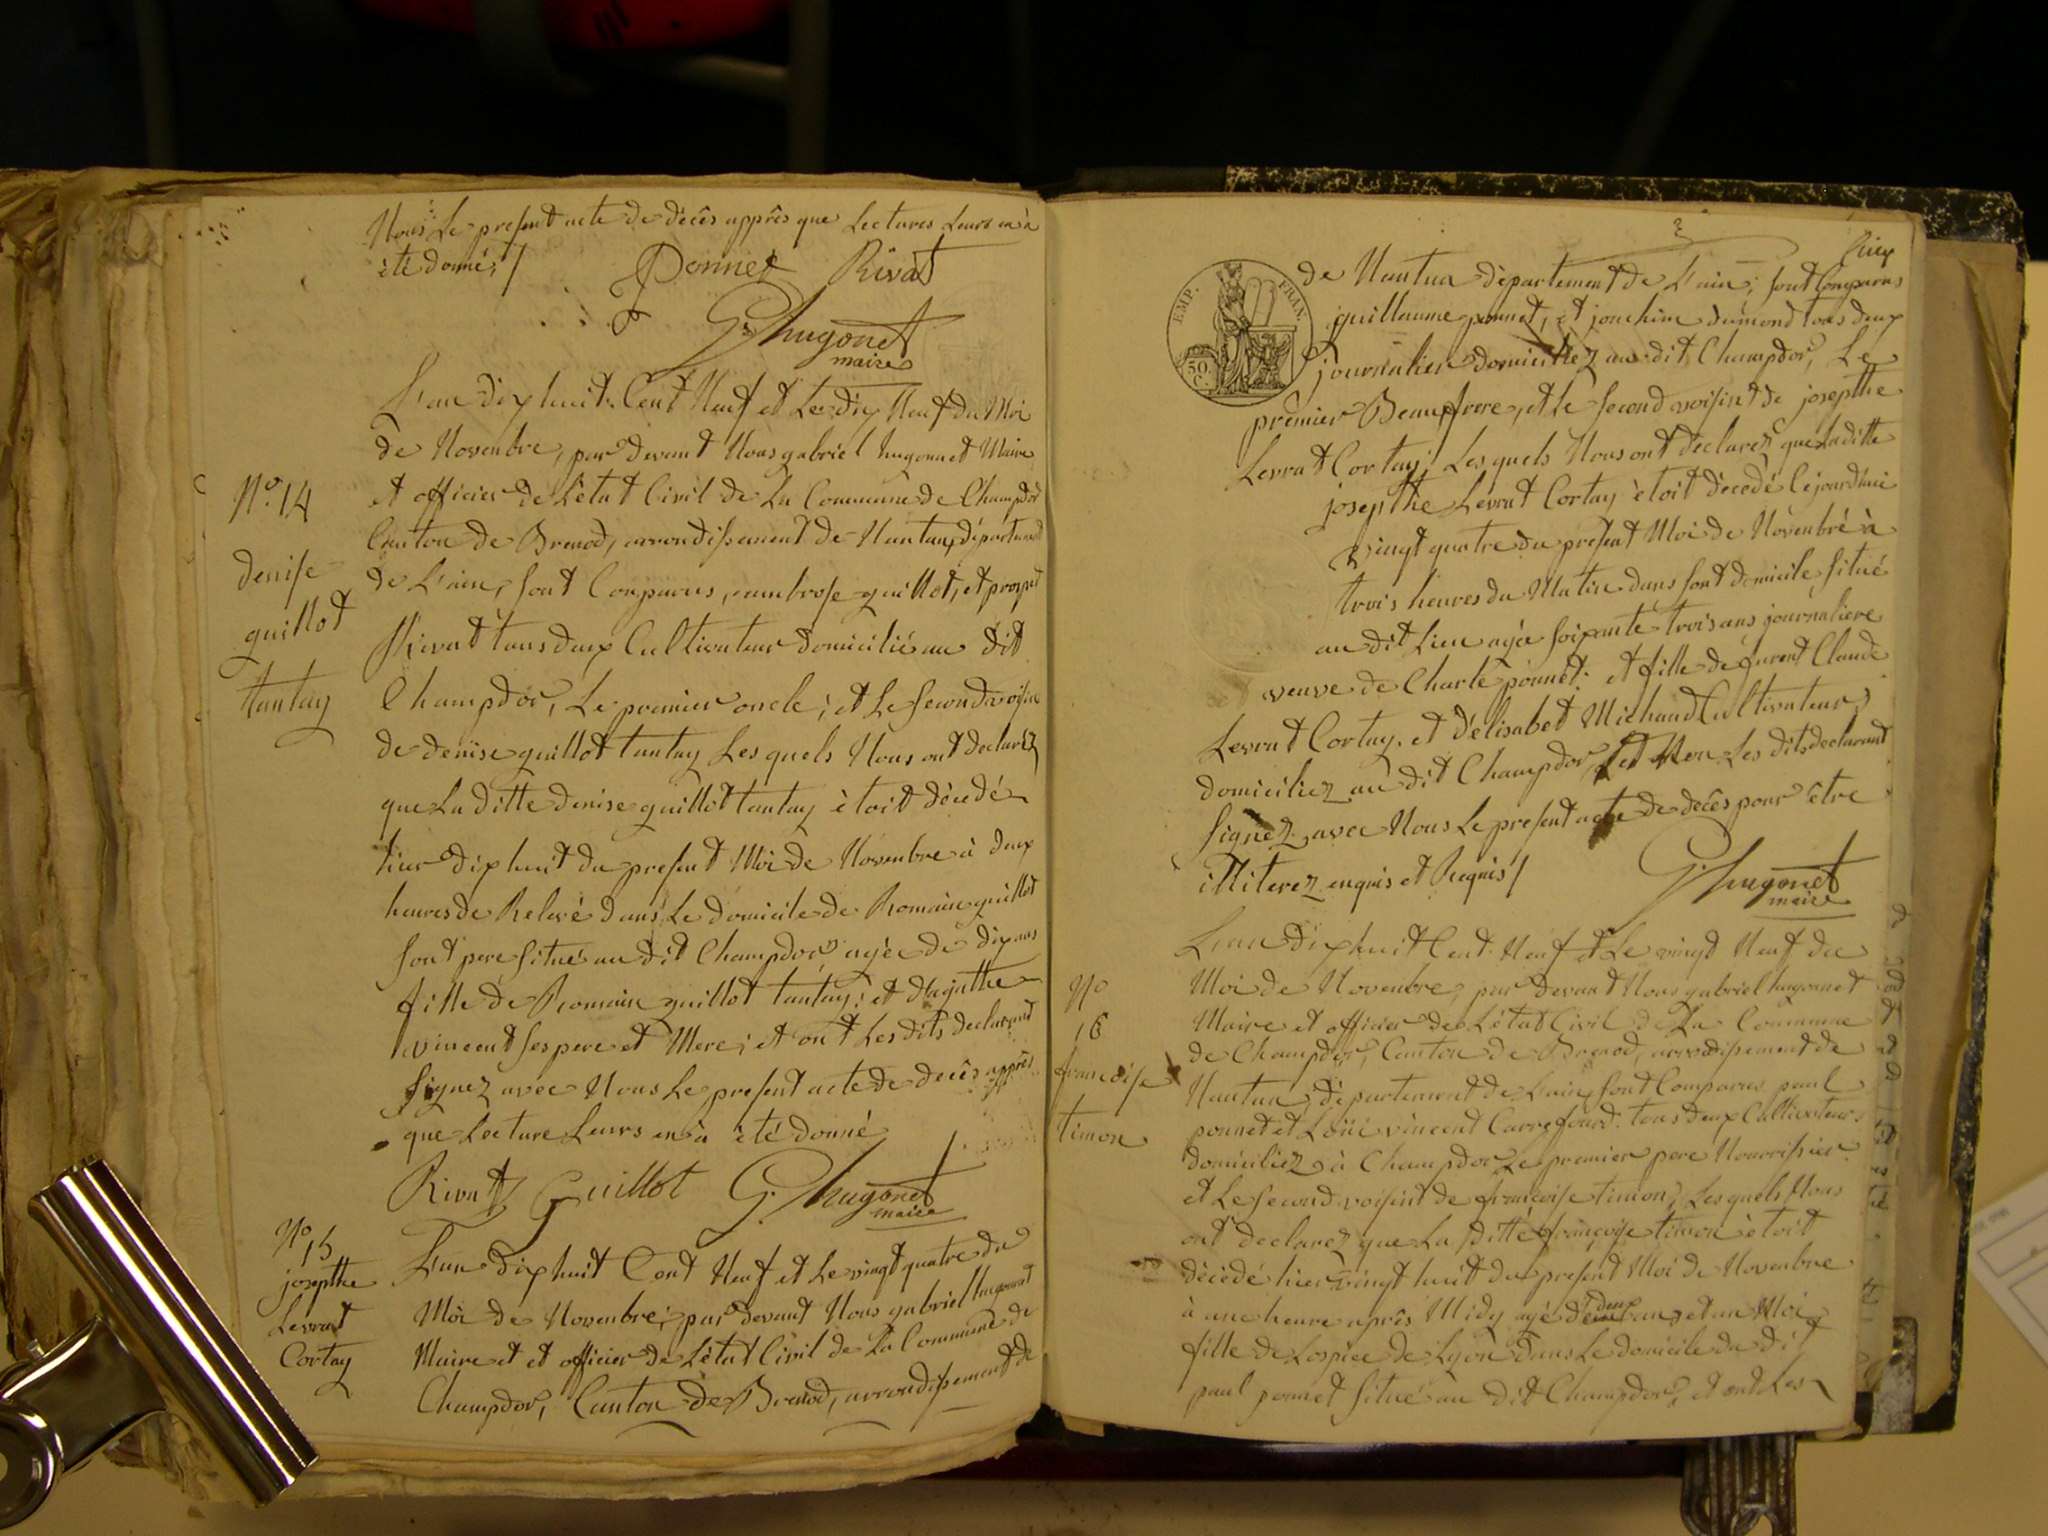 Nous Le present acte de décês apprês que Lectures Leurs en à
été donné,/
Ponnet Rivat
G. hugonet
maire
L'an dix huit Cent Neuf et Le dix Neuf du Moi
de Novenbre, par devant Nous gabriel hugonnet Maire
et officier de L'état Civil de La Commune de Champdor
Canton de Brenod, arrondissement de Nantua, département
de L'ain, sont Conparus, ambrose guillot, et prosper
Rivat tous deux Cultivateur domicilié au dit
Champdor, Le premier oncle; et Le second voisin
de denise guillot tantay Lesquels Nous ont declarez
que La ditte denise guillot tantay ètoit décedé
hier dix huit du present Moi de Novenbre à deux
heures de Relevé dans Le domicile de Romain guillot
sont pere situé au dit Champdor agée de dix ans
fille de Romain guillot tantay; et d'agathe
vincent ses pere et Mere; et ont Les dits declarant
signez avec Nous Le present acte de decês apprês
que Lecture Leurs en à été donné
Rivat Guillot G. hugonet
maire
No. 14
denise
guillot
tantay
No
15
josepthe
Levrat
Cortay
L'an dix huit Cent Neuf et Le vingt quatre du
Moi de Novenbre; par devant Nous gabriel hugonnet
Maire et et officier de L'état Civil de La Commune de
Champdor, Canton de Brenod, arrondissement de
EMP. FRAN.
50.
C.
de Nantua departement de L'ain; sont Conparus
guillaume ponnet, et joachim dumond tous deux
journalier domiciliez au dit Champdor, Le
premier Beaufrere, et Le second voisint de josepthe
Levrat Cortay; Lesquels Nous ont declarez que La ditte
josepthe Levrat Cortay ètoit décedé cejourdhui
vingt quatre du present Moi de Novenbre à
trois heures du Matin dans sont domicile situé
au dit Lieu agée soixante trois ans journaliere
veuve de Charle ponnet; et fille de furent Claude
Levrat Cortay. et d'élisabet Michaud Cultivateur
domiciliez au dit Champdor, et Non Les dits declarant
signez avec Nous Le present acte de decês pour être
illiterez enquis et Requis/
G. hugonet
maire
No
16
françoise
timon
L'an dix huit Cent Neuf et Le vingt Neuf du
Moi de Novenbre, par devant Nous gabriel hugonnet
Maire et officier de L'état Civil de La Commune
de Champdor, Canton de Brenod, arrondissement de
Nantua, département de L'ain, sont Comparus paul
ponnet et Loüi vincent Carrefourd. tous deux Cultivateur
domiciliez à Champdor Le premier pere Nourrissier
et Le second voisint de françoise timon, Lesquels Nous
ont declarez que La ditte françoise timon ètoit
décedé hier vingt huit du present Moi de Novenbre
à une heure aprês Midy agé de deux ans et un Moi
fille de Lospice de Lyon dans Le domicile du dit
paul ponnet situé au dit Champdor, et ont Les